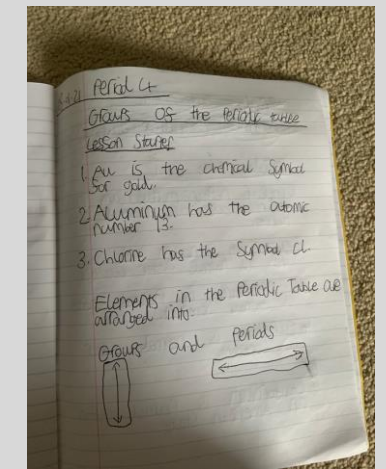 Period 4
Groups of the Periodic table
Lesson Starter
1. Au is the chemical Symbol
for gold.
2. Aluminium has the atomic
number 13.
3. Chlorine has the Symbol cl.
Elements in the Periodic Table are
arranged into:
Groups and Periods